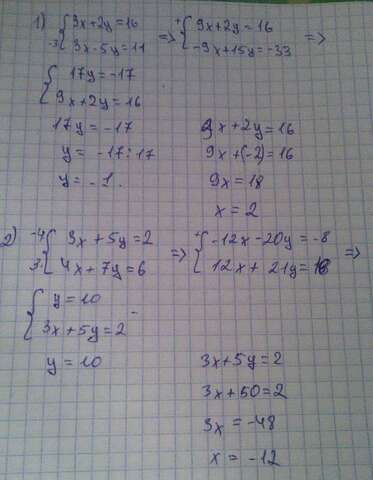 1) { 9x+2y=16 => + { 9x+2y=16 =>
-3 { 3x-5y=11 { -9x+15y=-33
{ 17y=-17
{ 9x+2y=16
17y=-17
y= -17:17
y=-1.
9x+2y=16
9x+(-2)=16
9x=18
x=2
2) -4 { 3x+5y=2 => + { -12x-20y=-8 =>
3 { 4x+7y=6 { 12x+21y=18
{ y=10
{ 3x+5y=2
y=10
3x+5y=2
3x+50=2
3x=-48
x=-12